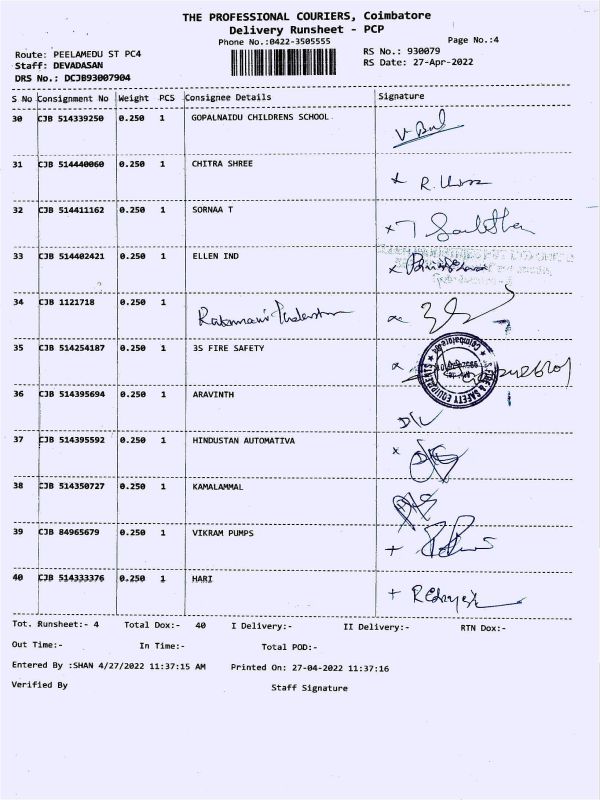 THE PROFESSIONAL COURIERS, Coimbatore
Delivery Runsheet - PCP
Phone No.:0422-3505555
Page No.:4
Route: PEELAMEDU ST PC4
RS No.: 930079
Staff: DEVADASAN
RS Date: 27-Apr-2022
DRS No.: DCJB93007904
S No Consignment No Weight PCS Consignee Details Signature
30 CJB 514339250 0.250 1 GOPALNAIDU CHILDRENS SCHOOL
31 CJB 514440060 0.250 1 CHITRA SHREE
32 CJB 514411162 0.250 1 SORNAA T
33 CJB 514402421 0.250 1 ELLEN IND
34 CJB 1121718 0.250 1
35 CJB 514254187 0.250 1 3S FIRE SAFETY
36 CJB 514395694 0.250 1 ARAVINTH
37 CJB 514395592 0.250 1 HINDUSTAN AUTOMATIVA
38 CJB 514350727 0.250 1 KAMALAMMAL
39 CJB 84965679 0.250 1 VIKRAM PUMPS
40 CJB 514333376 0.250 1 HARI
Tot. Runsheet:- 4 Total Dox:- 40 I Delivery:- II Delivery:- RTN Dox:-
Out Time:- In Time:- Total POD:-
Entered By :SHAN 4/27/2022 11:37:15 AM Printed On: 27-04-2022 11:37:16
Verified By Staff Signature